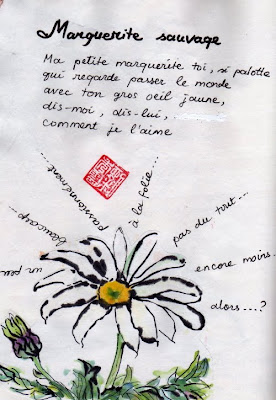 Marguerite sauvage
Ma petite marguerite toi, si palotte
qui regarde passer le monde
avec ton gros oeil jaune,
dis-moi, dis-lui,
comment je l'aime
un peu...
beaucoup...
passionnément...
à la folie...
pas du tout...
encore moins...
alors....?